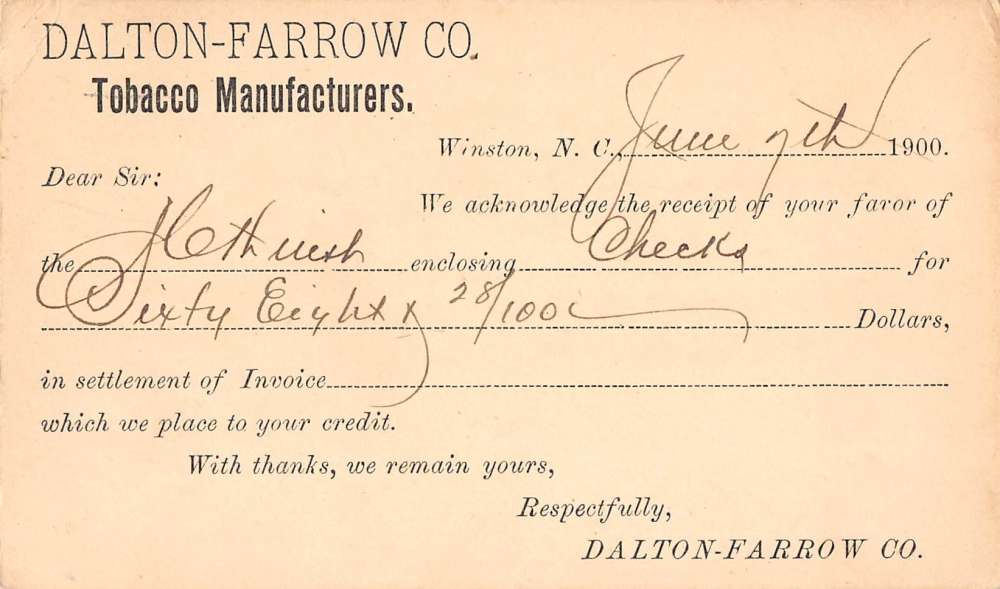 DALTON-FARROW CO.
Tobacco Manufacturers.
Winston, N. C., June 7th 1900.
Dear Sir:
We acknowledge the receipt of your favor of
the 6th inst enclosing Checks for
Sixty Eight x 28/100 Dollars,
in settlement of Invoice
which we place to your credit.
With thanks, we remain yours,
Respectfully,
DALTON-FARROW CO.